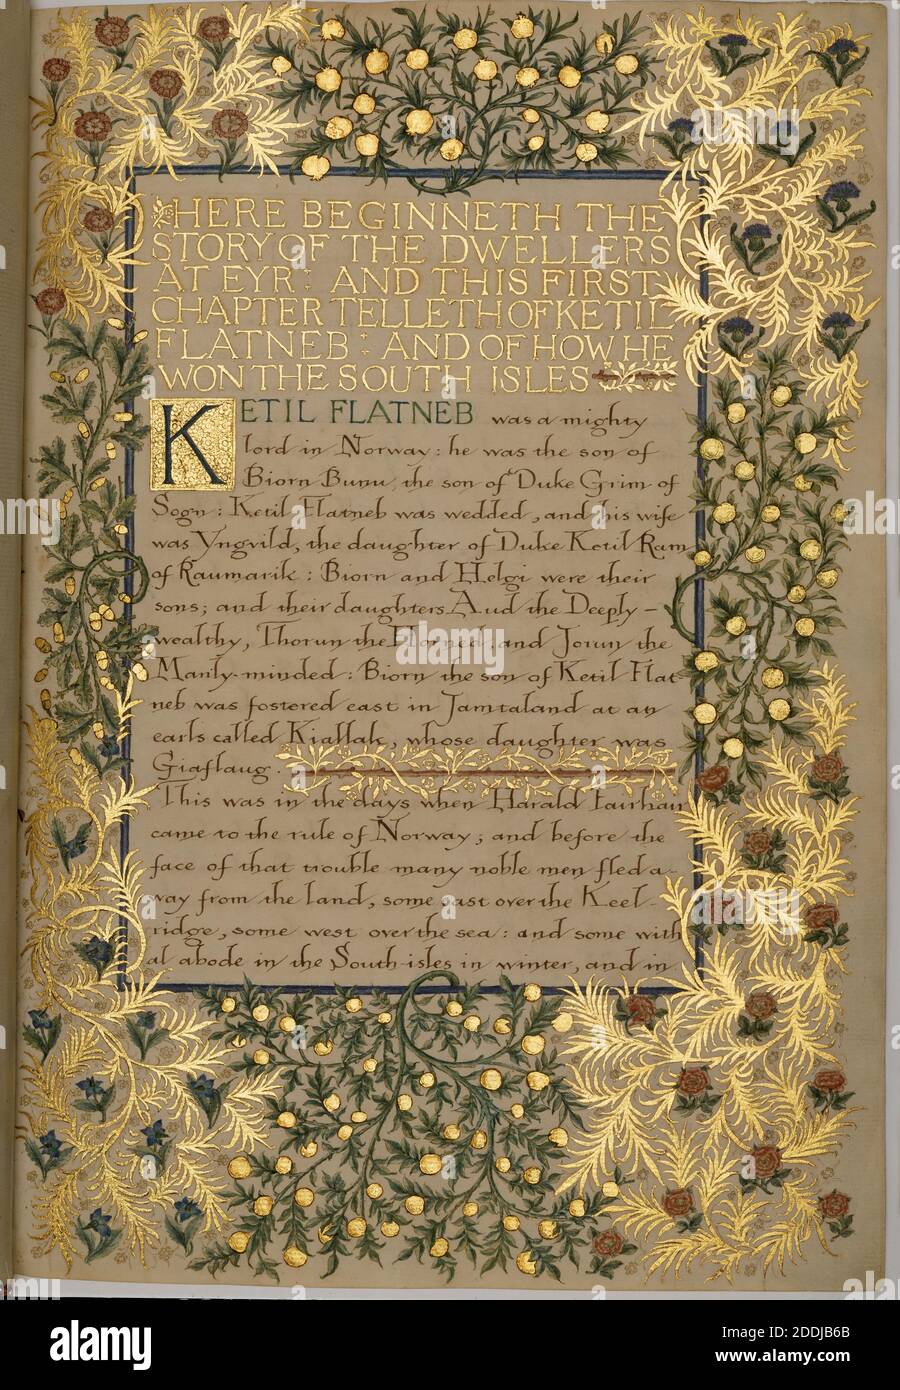 HERE BEGINNETH THE
STORY OF THE DWELLERS
AT EYR: AND THIS FIRST
CHAPTER TELLETH OF KETIL
FLATNEB: AND OF HOW HE
WON THE SOUTH ISLES
KETIL FLATNEB was a mighty
lord in Norway: he was the son of
Biorn Bunu, the son of Duke Grim of
Sogn: Ketil Flatneb was wedded, and his wife
was Yngvild, the daughter of Duke Ketil Ram
of Raumarik: Biorn and Helgi were their
sons; and their daughters Aud the Deeply-
wealthy, Thorun the Horned, and Jorun the
Manly-minded: Biorn the son of Ketil Flat-
neb was fostered east in Jamtaland at an
earls called Kiallak, whose daughter was
Giaflaug.
This was in the days when Harald Fairhair
came to the rule of Norway; and before the
face of that trouble many noble men fled a-
way from the land, some east over the Keel-
ridge, some west over the sea: and some with
al abode in the South-isles in winter, and in
alamy
Image ID: 2DDJB6B
www.alamy.com